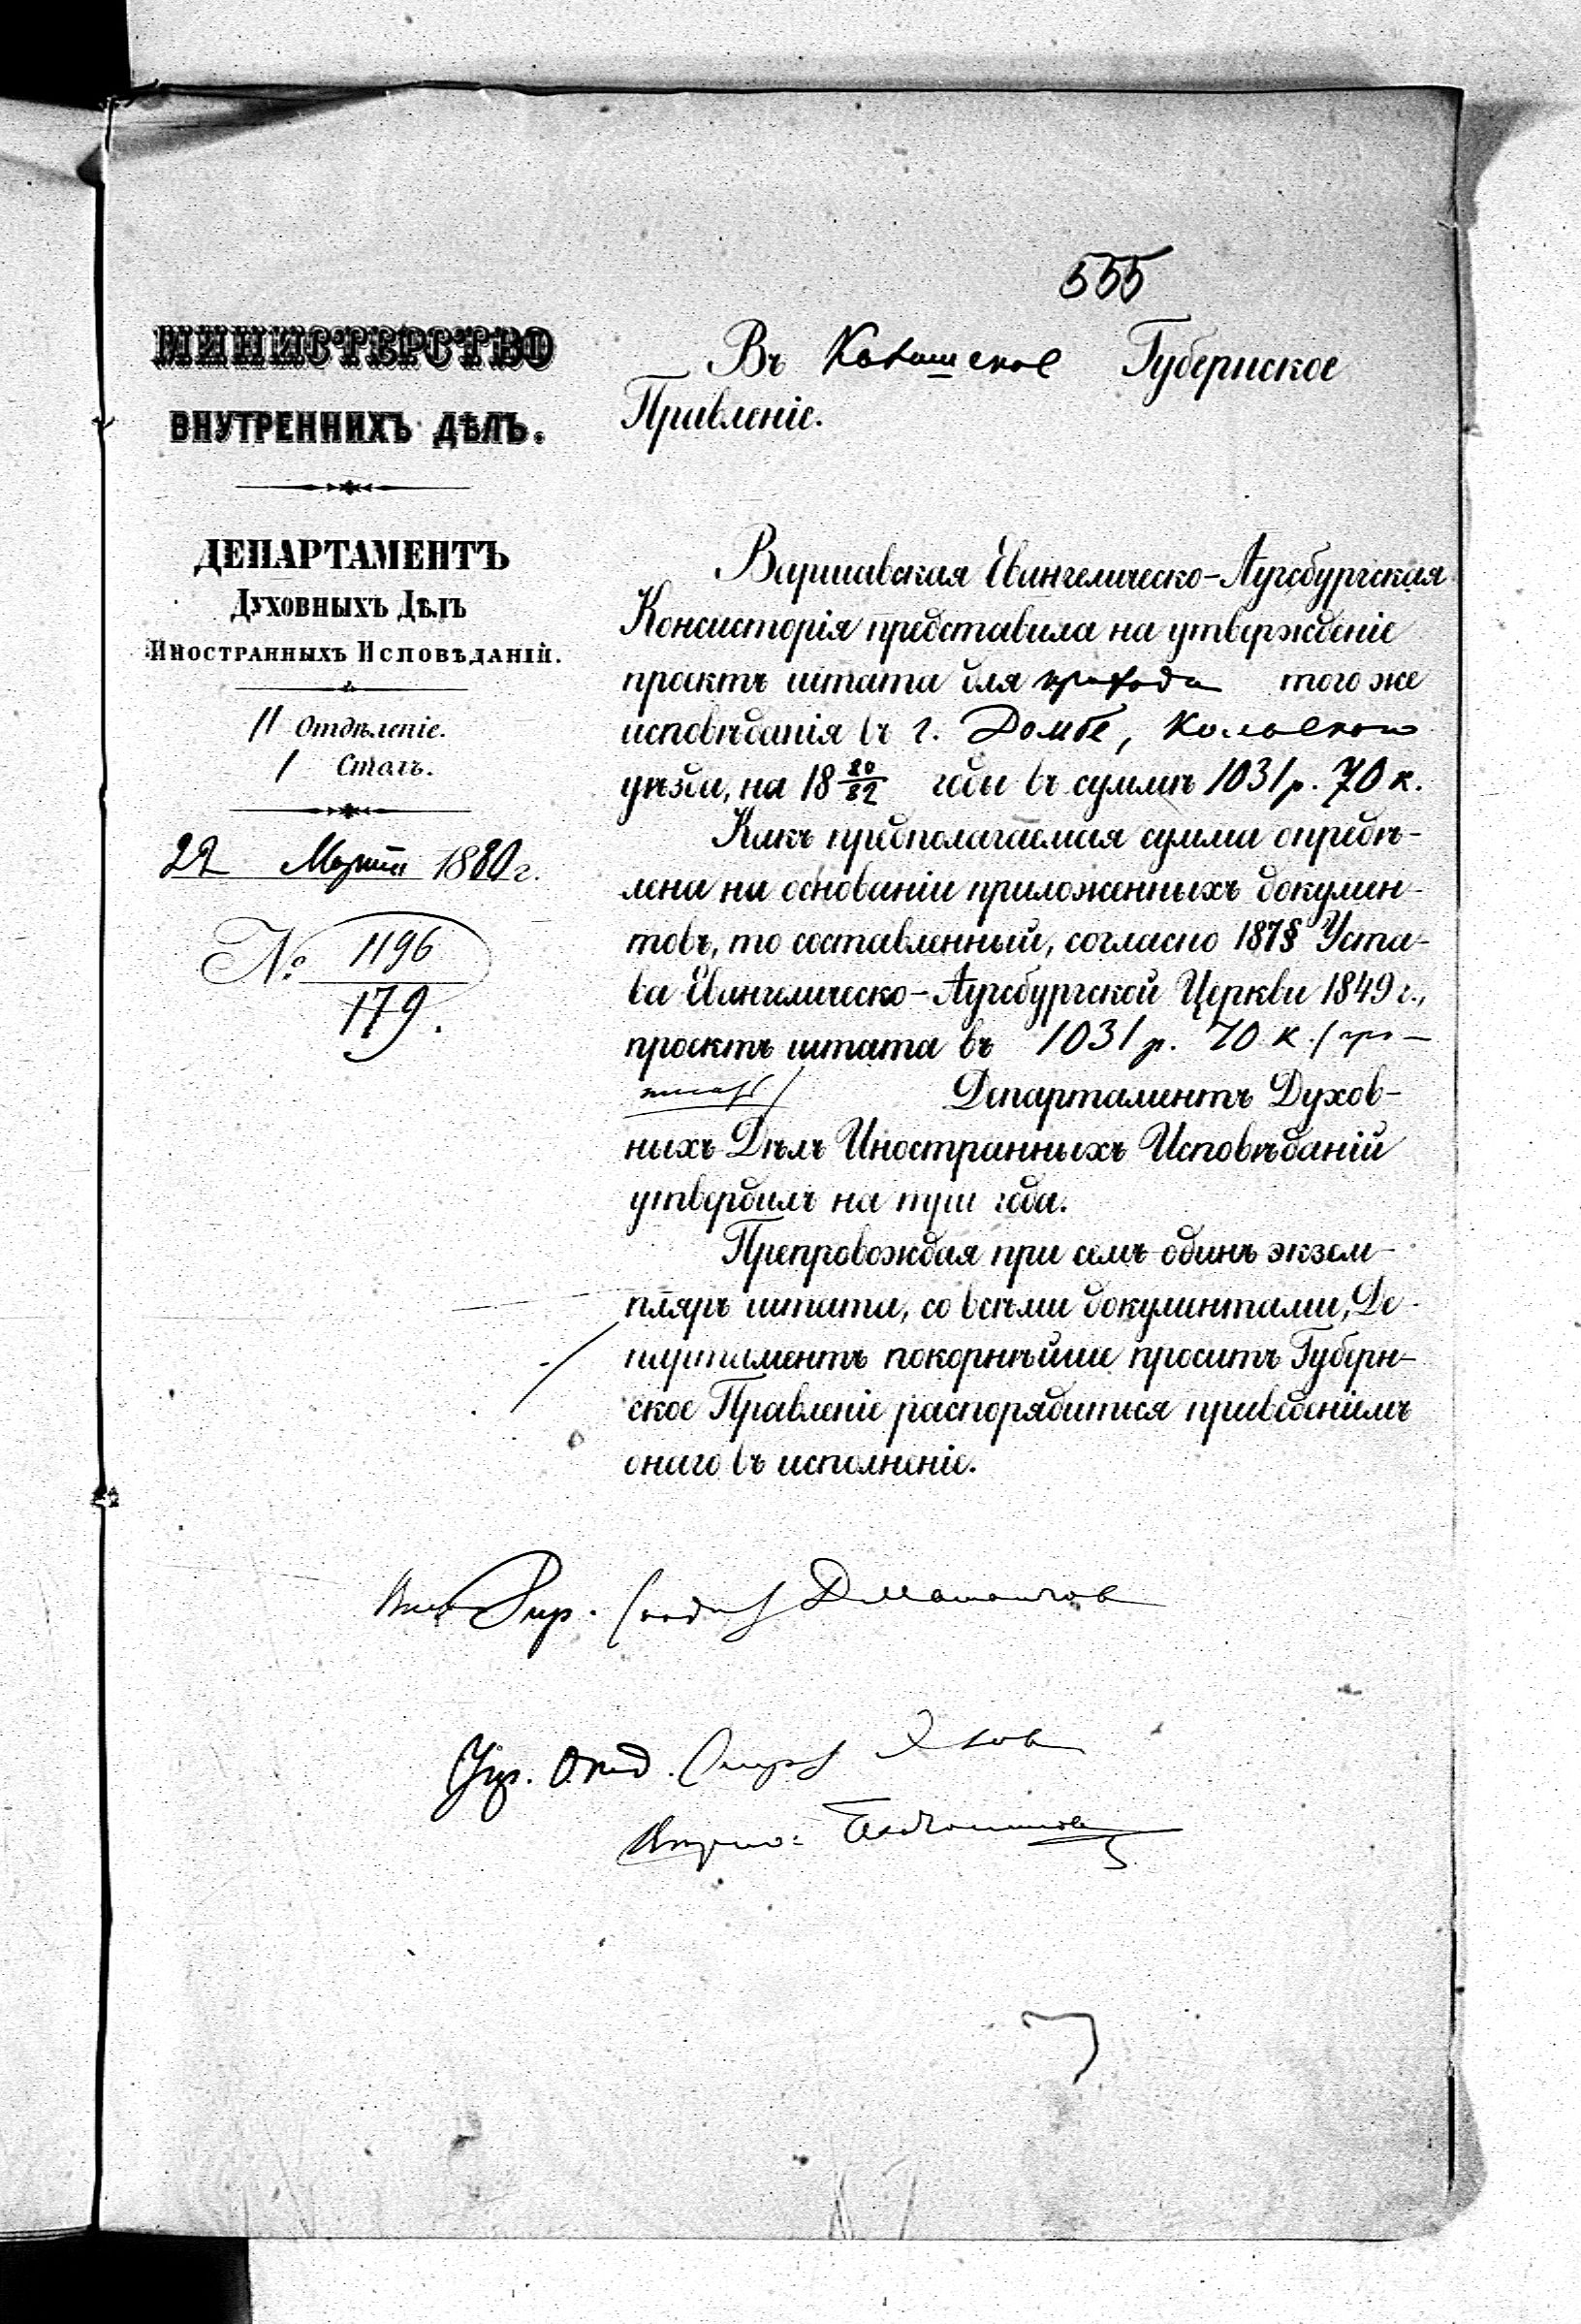 555
МИНИСТЕРСТВО
ВНУТРЕННИХЪ ДѢЛЪ.
ДЕПАРТАМЕНТЪ
Духовныхъ Дѣлъ
Иностранныхъ Исповѣданій.
II Отдѣленіе.
1 Столъ.
22 Марта 1880 г.
№ 1196
179.
Въ Калишское Губернское
Правленіе.
Варшавская Евангелическо-Аугсбургская
Консисторія представила на утвержденіе
проектъ штата для прихода того же
исповѣданія въ г. Домбе, Кольскаго
уѣзда, на 18 80/82 годы въ суммѣ 1031 р. 70 к.
Какъ предполагаемая сумма опредѣ-
лена на основаніи приложенныхъ докумен-
товъ, то составленный, согласно 187 § Уста-
ва Евангелическо-Аугсбургской Церкви 1849 г.,
проектъ штата въ 1031 р. 70 к.
Департаментъ Духов-
ныхъ Дѣлъ Иностранныхъ Исповѣданій
утвердилъ на три года.
Препровождая при семъ одинъ экзем-
пляръ штата, со всѣми документами, Де-
партаментъ покорнѣйше проситъ Губерн-
ское Правленіе распорядиться приведеніемъ
онаго въ исполненіе.
Вице Дир.
Упр. Отд.